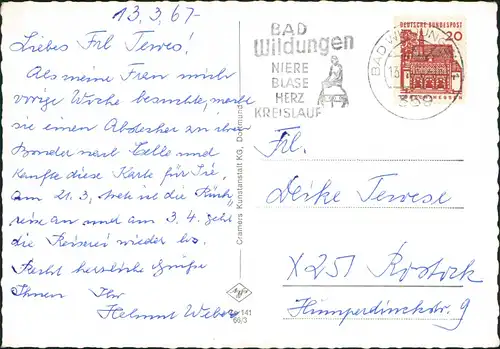 13.3.67-
Liebes Frl Tewes!
Als meine Frau mich
vorige Woche besuchte, machte
sie einen Abstecher zu ihrem
Bruder nach Celle und
kaufte diese Karte für Sie,
am 21.3. trete ich die Rück
reise an und am 3.4. geht
die Reiserei wieder los.
Recht herzliche Grüße
Ihnen Ihr
Helmut Weber
Cramers Kunstanstalt KG, Dortmund
141
66/3
BAD
Wildungen
NIERE
BLASE
HERZ
KREISLAUF
DEUTSCHE BUNDESPOST
20
BAD WILDUN
Frl.
Tewese
X 251 Rostock
Humperdinckstr. 9